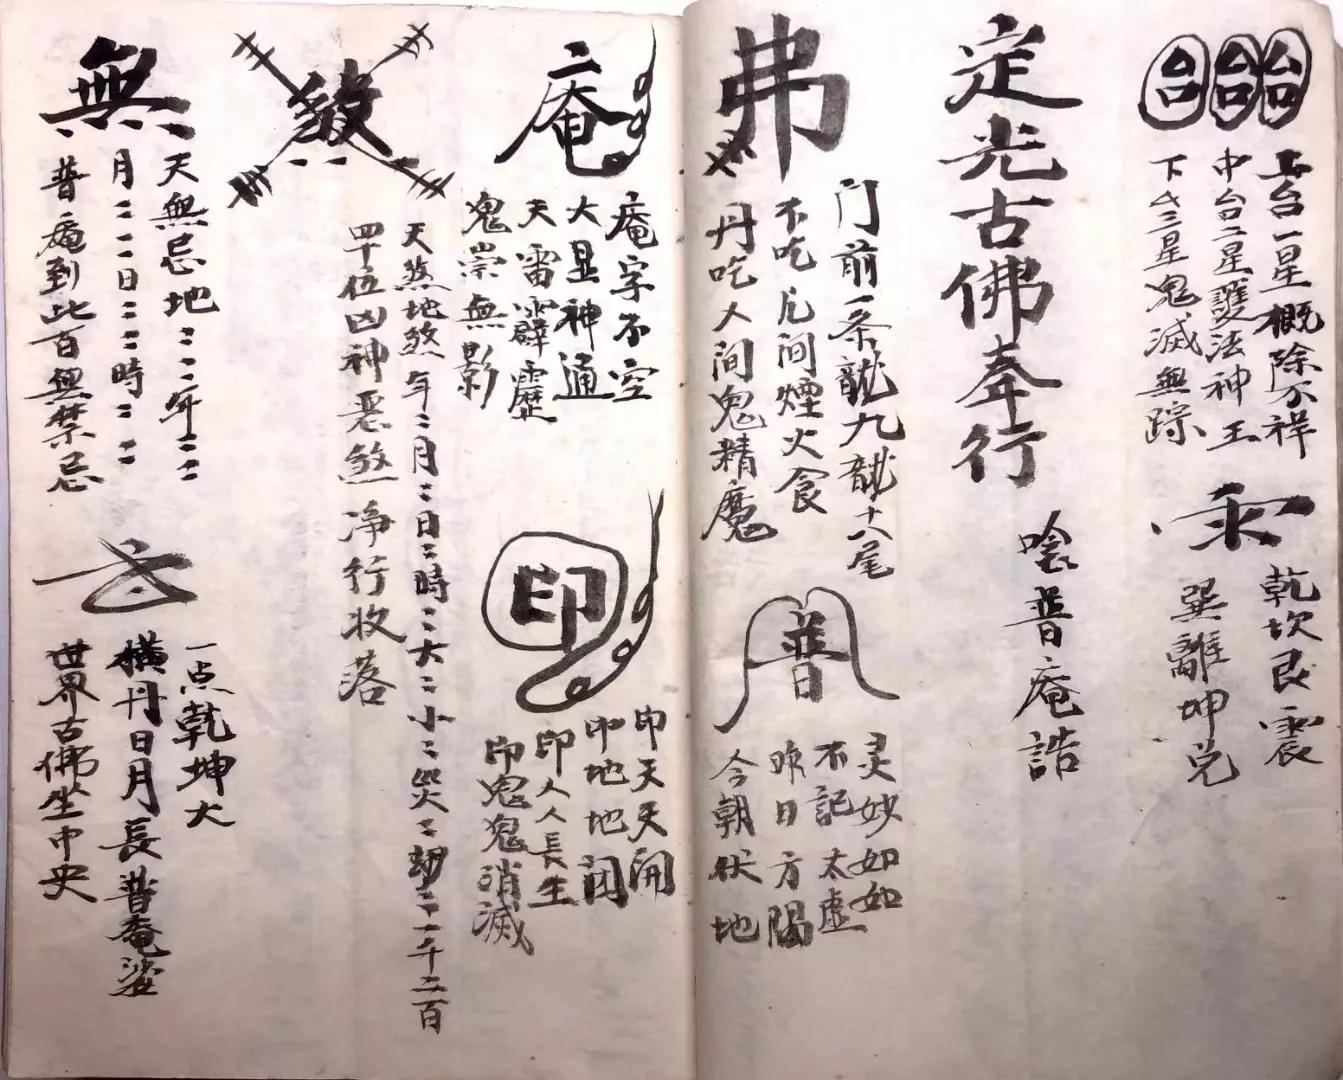 台台台
上台一星概除不祥
中台二星護法神王
下台三星鬼滅無踪
乾坎艮震
巽離坤兑
定光古佛奉行
普庵誥
弗
门前一条龍九龍十八尾
不吃凡间煙火食
丹吃人间鬼精魔
普
灵妙如如
不記太虚
昨日方陽
今朝伏地
庵
庵字不空
大显神通
天雷霹靂
鬼祟無影
印
印天天開
印地地闭
印人人長生
印鬼鬼消滅
煞
天煞地煞年二月二日二時二大二小二災二劫二一千二百
四十位凶神恶煞净行收落
無
天無忌地二二年二二
月二二日二二時二二
普庵到此百無禁忌
一点乾坤大
横丹日月長普庵娑
世界古佛坐中央